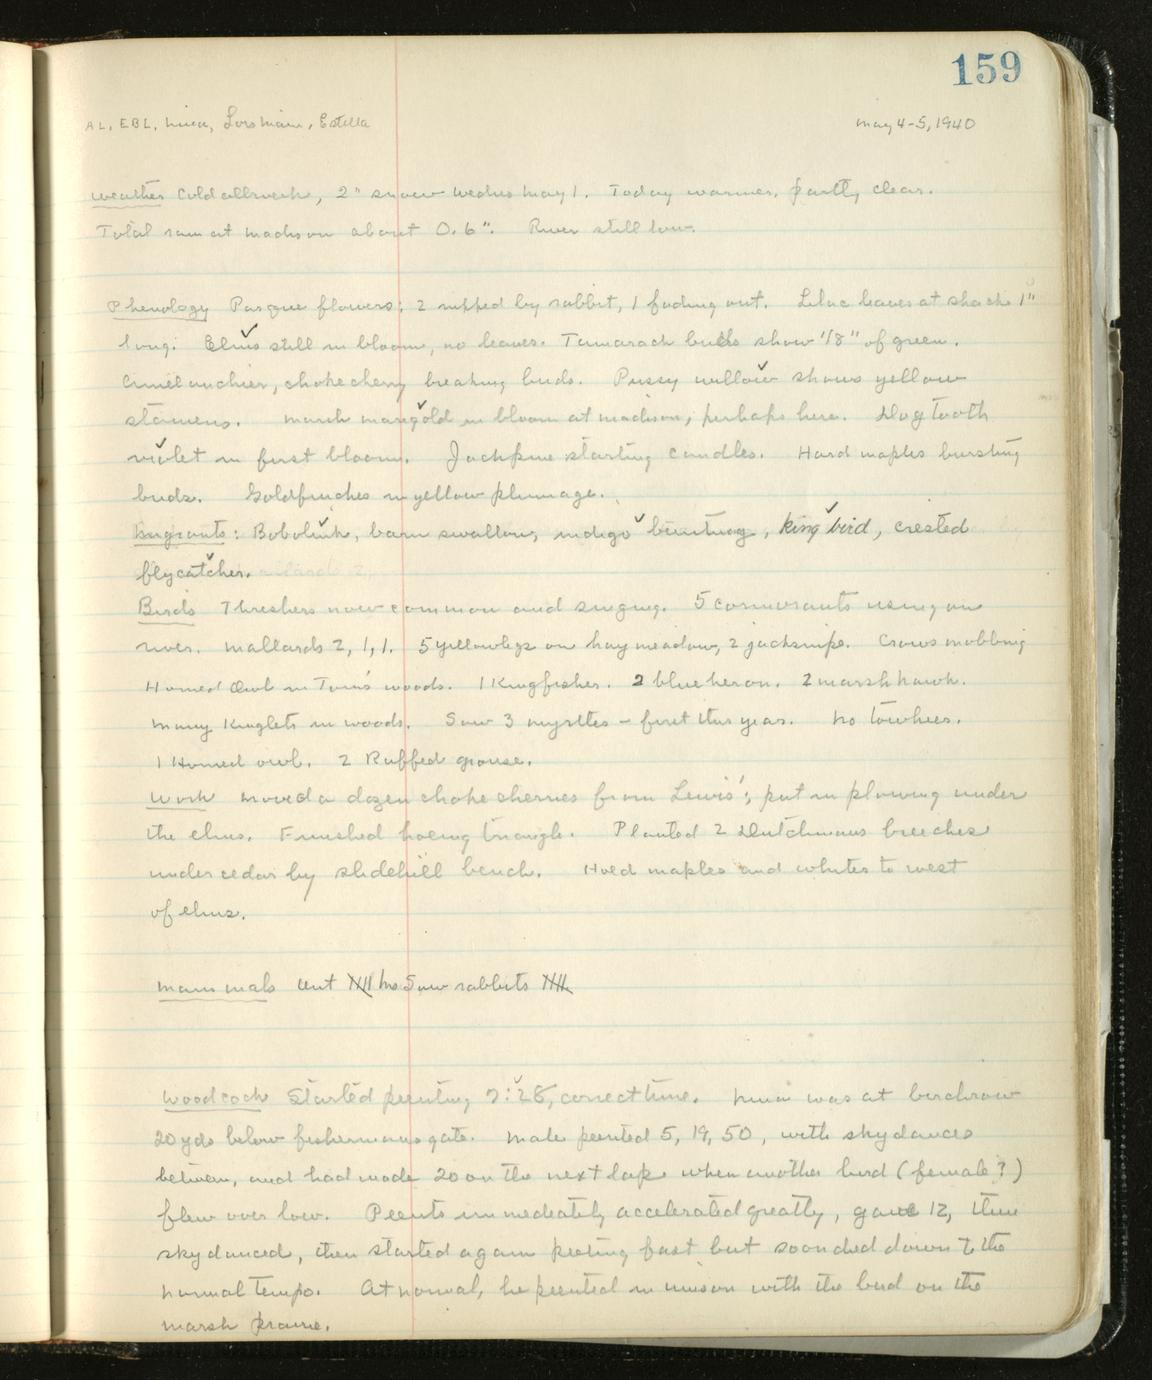 159
AL, EBL, Nina, Lorsmain, Estella May 4-5, 1940
Weather Cold all week, 2" snow Wednes May 1. Today warmer, partly clear.
Total rain at Madison about 0.6". River still low.
Phenology Pasque flowers: 2 nipped by rabbit, 1 fading out. Lilac leaves at shack 1"
long. Elms still in bloom, no leaves. Tamarack buds show 1/8" of green.
Amelanchier, chokecherry breaking buds. Pussy willow shows yellow
stamens. Marsh marigold in bloom at Madison, perhaps here. Dog tooth
violet in first bloom. Jackpine starting candles. Hard maples bursting
buds. Goldfinches in yellow plumage.
Migrants: Bobolink, barn swallow, indigo bunting, king bird, crested
flycatcher.
Birds Threshers now common and singing. 5 cormorants using on
river. Mallards 2, 1, 1. 5 yellowlegs on hay meadow, 2 jacksnipe. Crows mobbing
Horned Owl in Tom's woods. 1 Kingfisher. 2 blue heron. 2 marsh hawk.
Many Kinglets in woods. Saw 3 myrtles - first this year. No towhees.
1 Horned owl. 2 Ruffed grouse.
Work Moved a dozen choke cherries from Lewis'; put in plowing under
the elms. Finished hoeing triangle. Planted 2 Dutchmans breeches
under cedar by slidehill bench. Hoed maples and whites to west
of elms.
Mammals Saw rabbits
Woodcock Started peenting 7:28, correct time. Nina was at birchrow
20 yds below fishermans gate. Male peented 5, 19, 50, with skydances
between, and had made 20 on the next lap when another bird (female?)
flew over low. Peents immediately accelerated greatly, gave 12, then
skydanced, then started again peenting fast but soon died down to the
normal tempo. At normal, he peented in unison with the bird on the
marsh prairie.